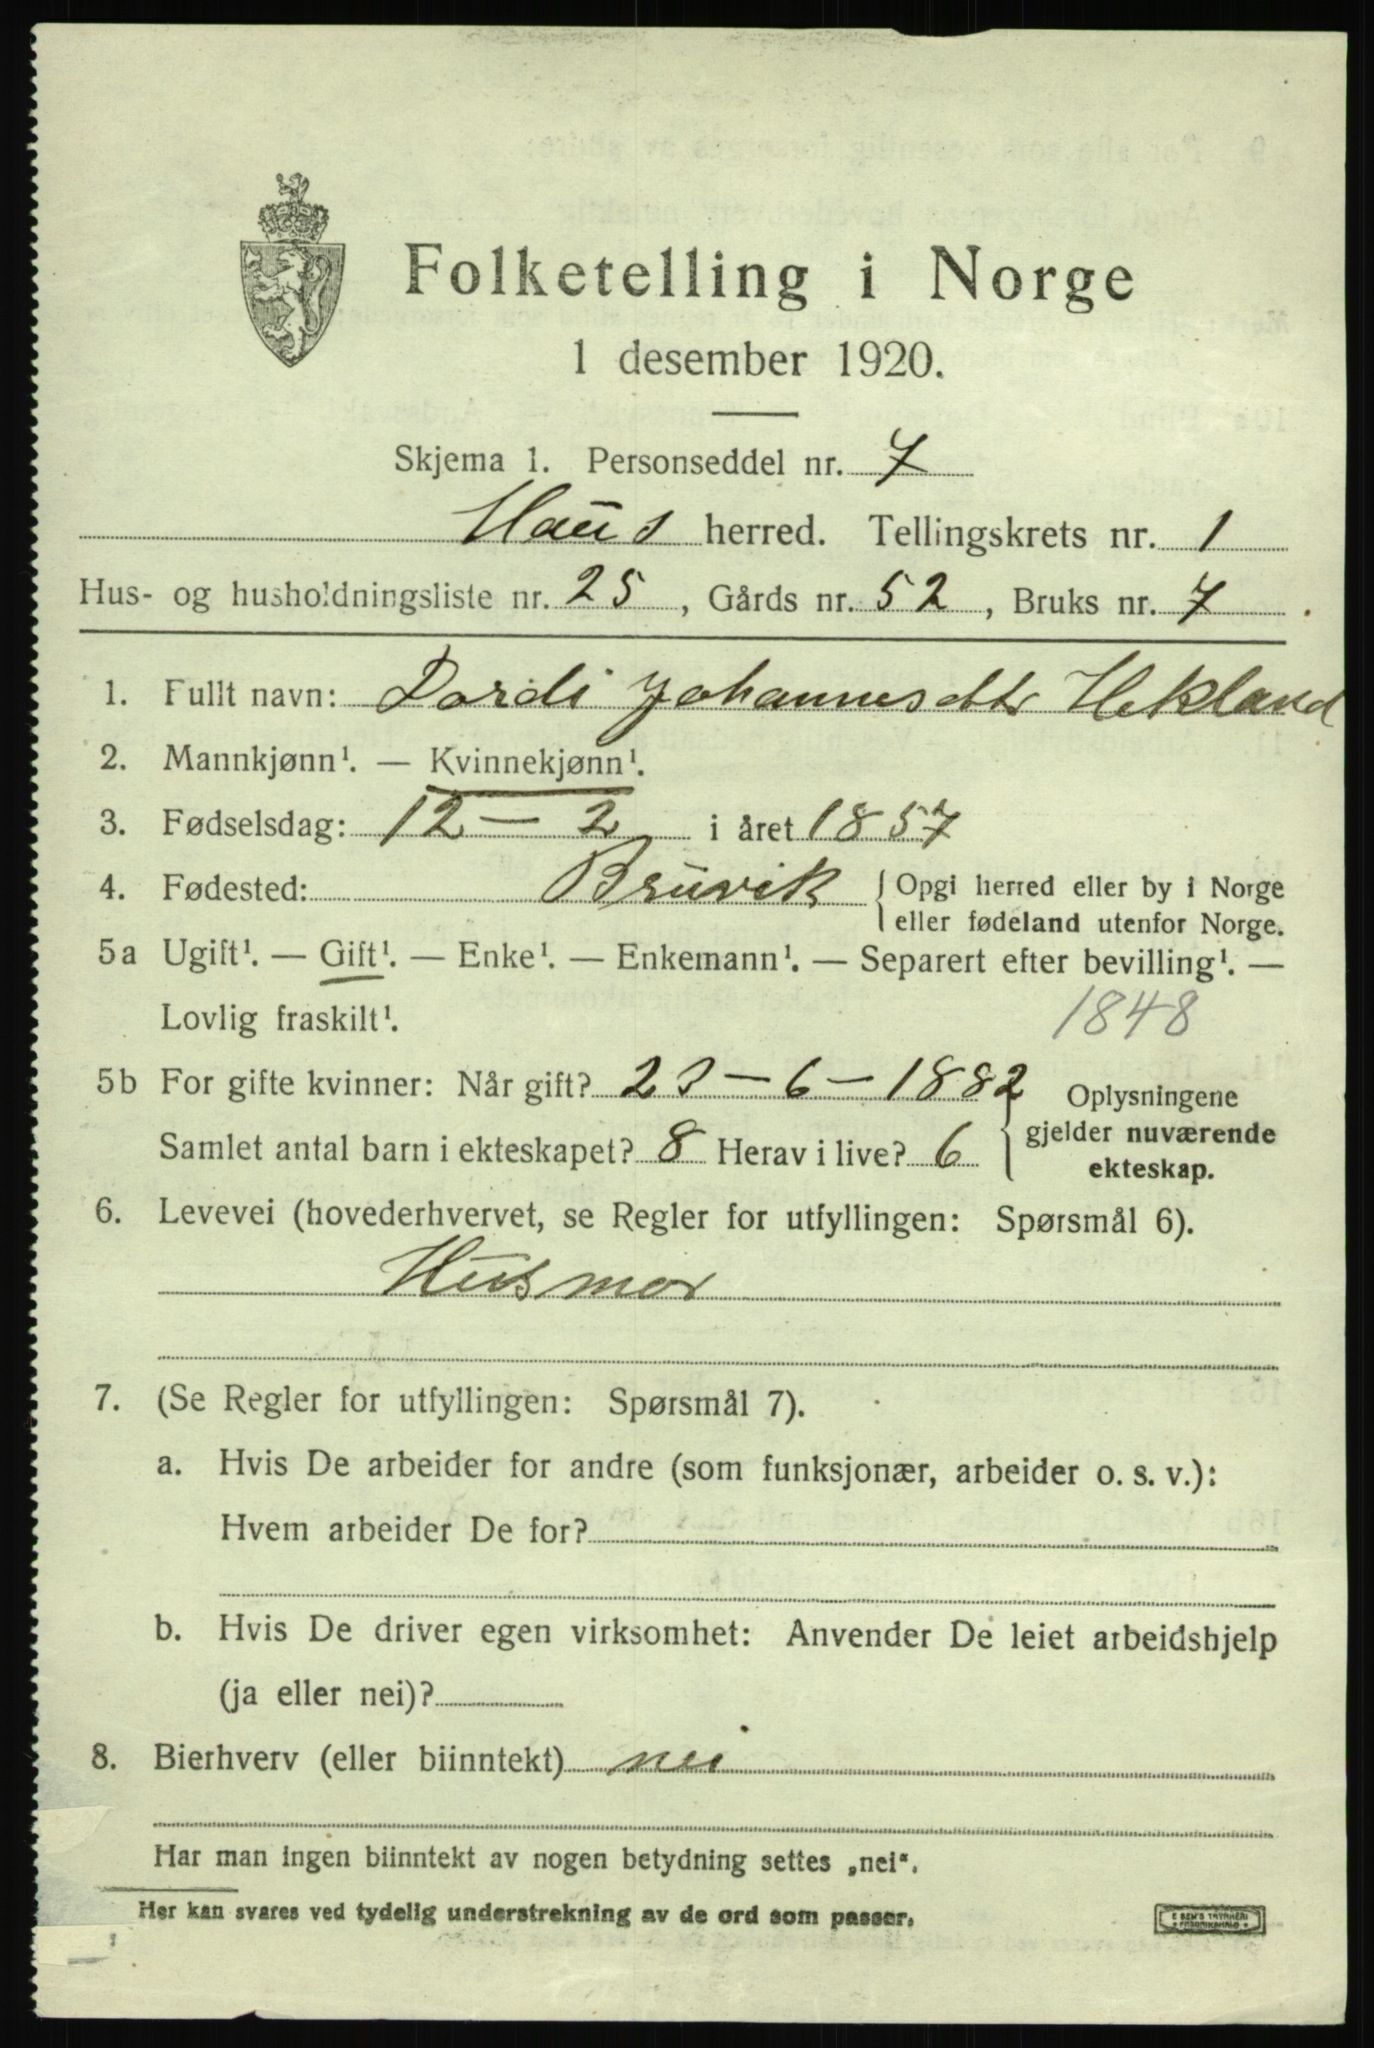 Folketelling i Norge
1 desember 1920.
Skjema 1. Personseddel nr. 7
Haus herred. Tellingskrets nr. 1
Hus- og husholdningsliste nr. 25, Gårds nr. 52, Bruks nr. 7.
1. Fullt navn: Dordi Johannesdtr Hekland
2. Mannkjønn¹. — Kvinnekjønn¹.
3. Fødselsdag: 12 – 2 i året 1857
4. Fødested: Bruvik { Opgi herred eller by i Norge
eller fødeland utenfor Norge.
5a Ugift¹. — Gift¹. — Enke¹. — Enkemann¹. — Separert efter bevilling¹. —
Lovlig fraskilt¹. 1848
5b For gifte kvinner: Når gift? 23 – 6 – 1882 { Oplysningene
Samlet antal barn i ekteskapet? 8 Herav i live? 6 gjelder nuværende
ekteskap.
6. Levevei (hovederhvervet, se Regler for utfyllingen: Spørsmål 6).
Husmor
7. (Se Regler for utfyllingen: Spørsmål 7).
a. Hvis De arbeider for andre (som funksjonær, arbeider o. s. v.):
Hvem arbeider De for?
b. Hvis De driver egen virksomhet: Anvender De leiet arbeidshjelp
(ja eller nei)?
8. Bierhverv (eller biinntekt) nei
Har man ingen biinntekt av nogen betydning settes „nei“.
Her kan svares ved tydelig understrekning av de ord som passer.